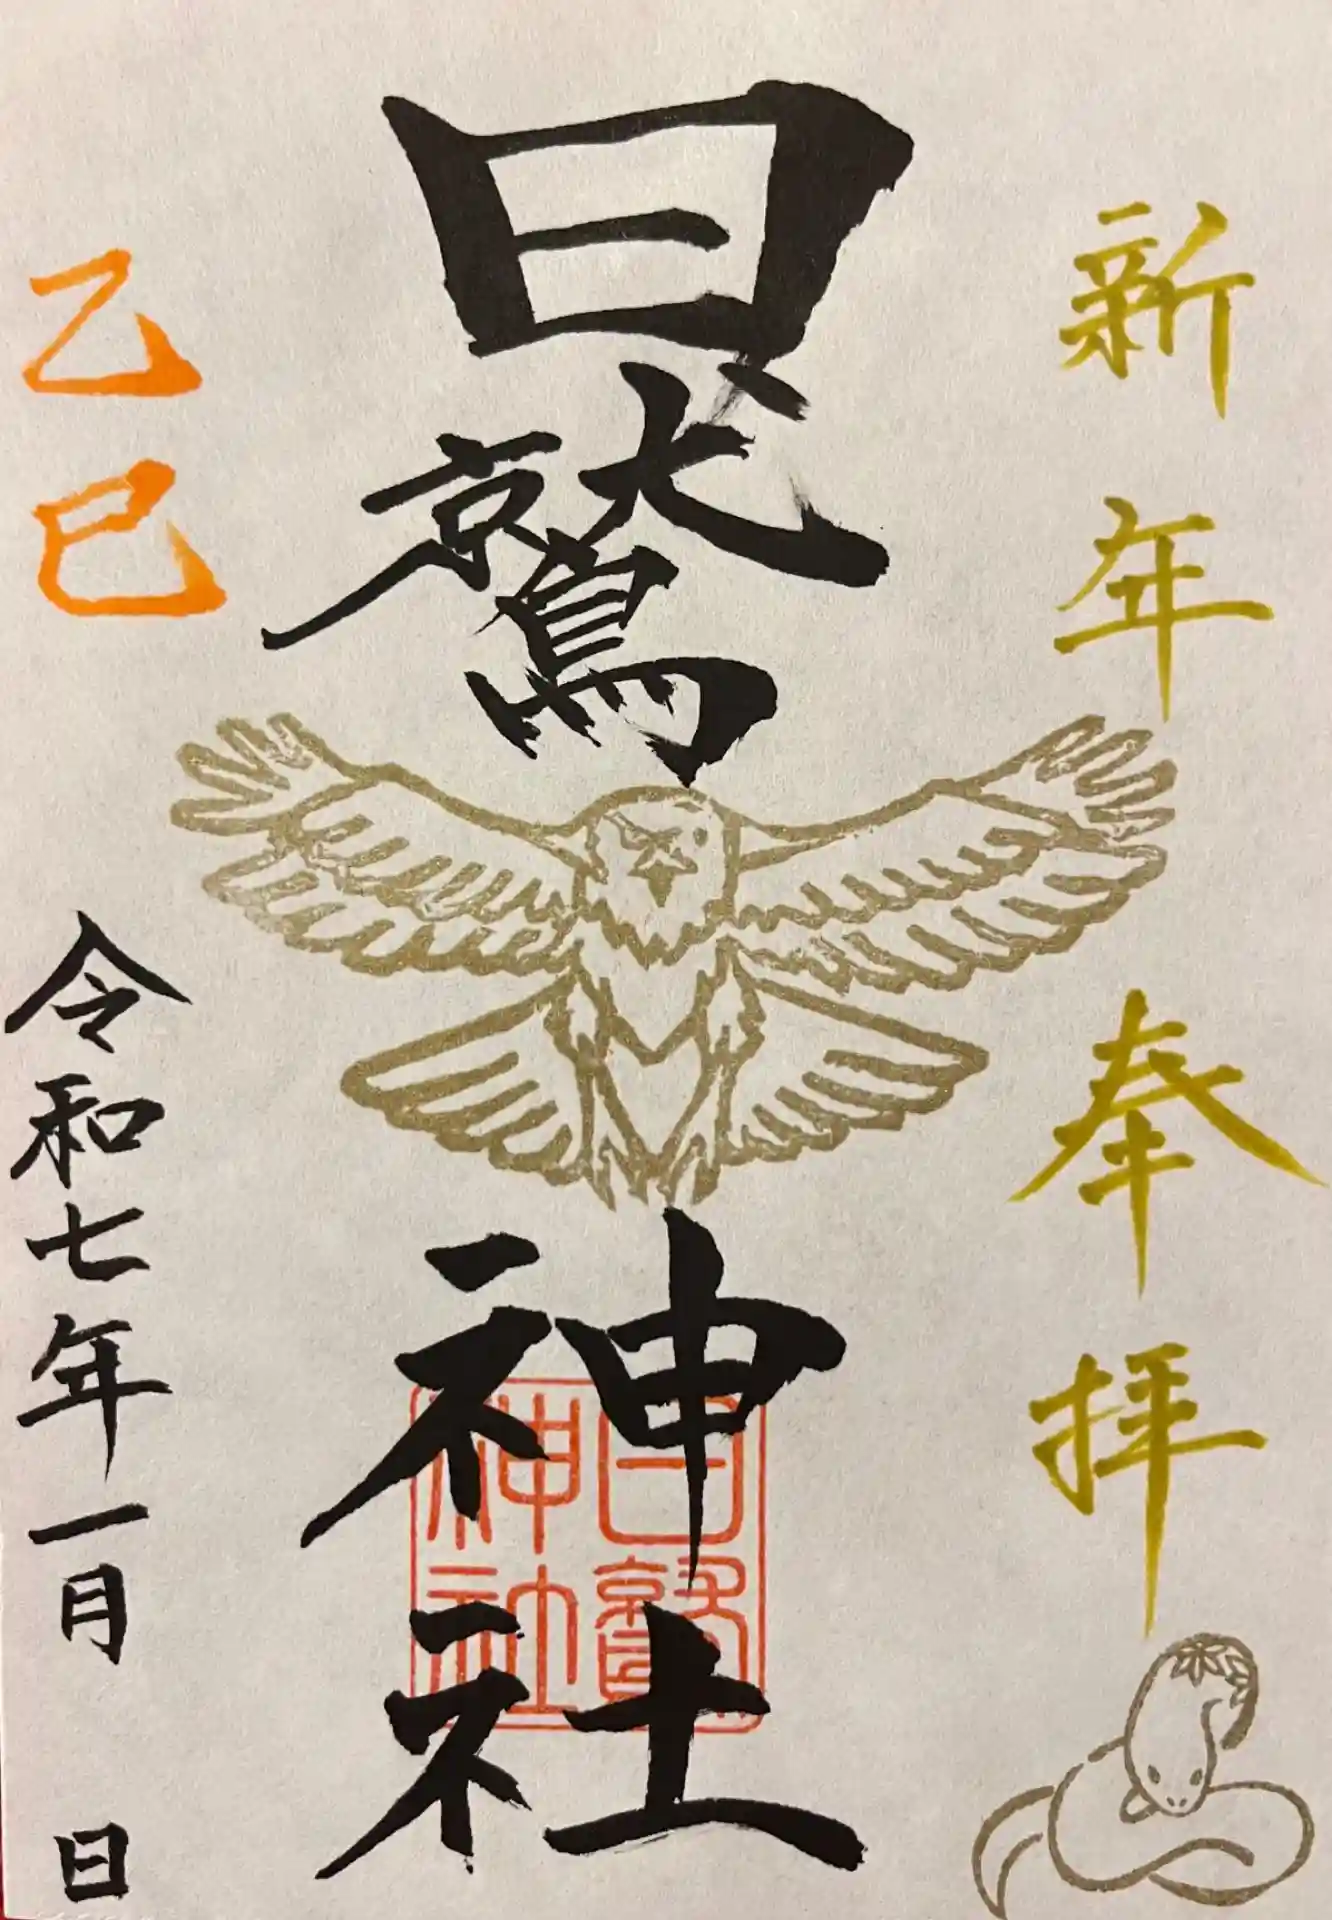 新年奉拝
日鷲神社
日鷲神社
乙巳
令和七年一月 日